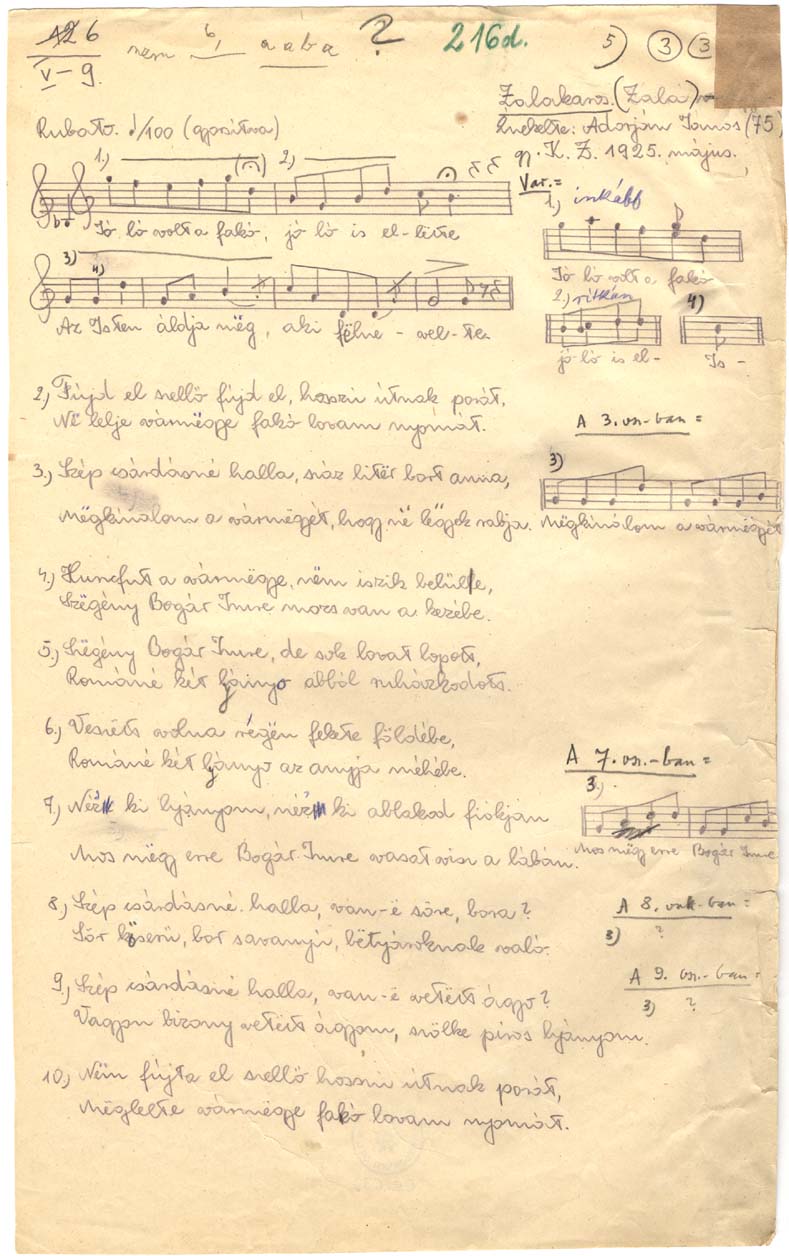 A26
V-9.
nem 6, a a b a ?
216d.
5) 3 3
Zalakaros. (Zala)
Énekelte: Adorján János (75)
gy. K. Z. 1925. május.
Rubato. /100 (gyorsítva)
1.) 2.)
Jó ló volt a fakó, jó ló is el-litte
3) 4)
Az Isten áldja mëg, aki fëlne - vel-te.
Var.=
1.) inkább
Jó ló volt a fakó
2.) ritkán 4)
jó ló is el- Is -
2.) Fújd el szellő fújd el, hosszú útnak porát,
Në lelje vármëgye fakó lovam nyomát.
A 3. vsz-ban =
3.) Szép csárdásné halla, száz litër bort anna,
Mëgkinálom a vármëgyét, hogy në lëgyek rabja.
3)
Mëgkinálom a vármëgyét
4.) Huncfut a vármëgye, nëm iszik belülle,
Szëgény Bogár Imre
van a kezébe.
5.) Szëgény Bogár Imre, de sok lovat lopott,
Románé két lyányo abból ruházkodott.
6.) Veszëtt volna régën fekete földébe,
Románé két lyányo az anyja méhébe.
A 7. vsz.-ban =
3.)
Mos mëgy erre Bogár Imre
7.) Nézz ki lyányom, nézz ki ablakod fiókján
Mos mëgy erre Bogár Imre vasat visz a lábán.
8.) Szép csárdásné halla, van-ë söre, bora?
Sör këserü, bor savanyú, bëtyároknak való.
A 8. vsk-ban =
3) ?
9.) Szép csárdásné halla, van-ë vetëtt ágyo?
Vagyon bizony vetëtt ágyom, szőlke piros lyányom.
A 9. vsz.-ban =
3) ?
10.) Nëm fújta el szellő hosszú útnak porát,
Mëglelte vármëgye fakó lovam nyomát.